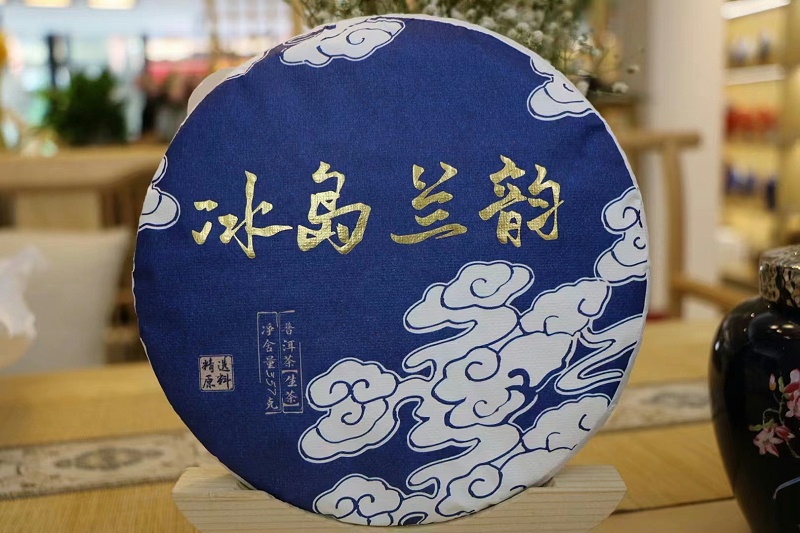 冰岛兰韵
普洱茶[生茶]
净含量357克
选料
精原